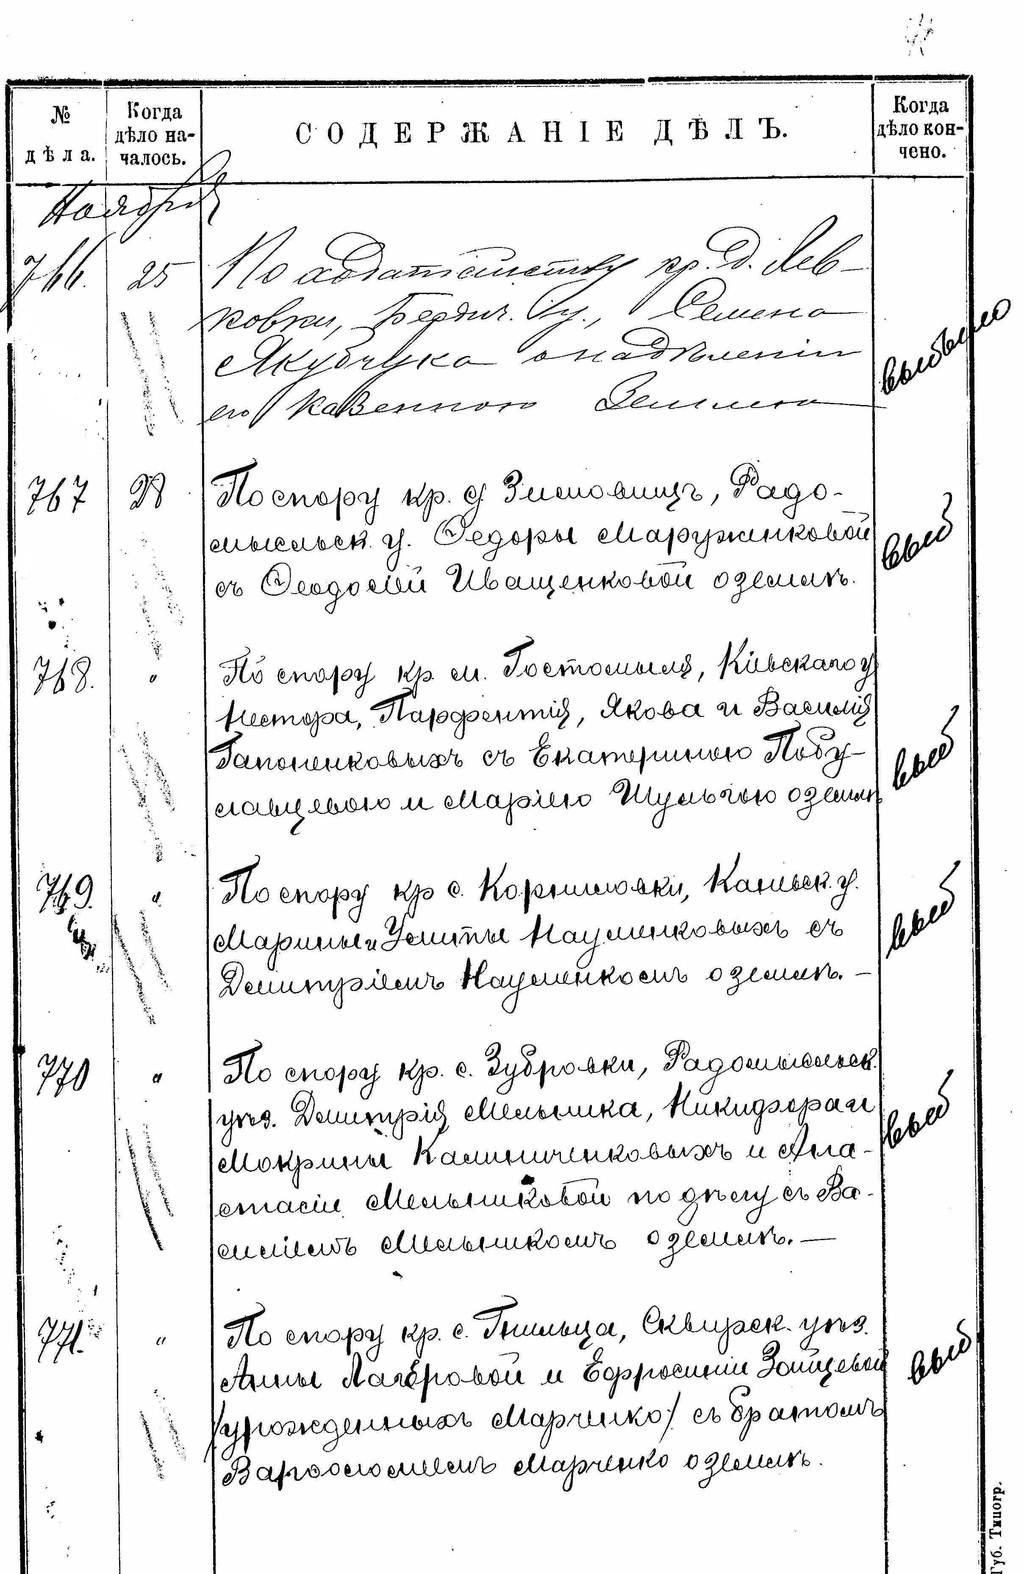 № дѣла.
Когда дѣло началось.
СОДЕРЖАНІЕ ДѢЛЪ.
Когда дѣло кончено.
Ноября
766. 25 По ходатайству кр. д. Лев-
ковки, Бердич. у., Семена
Якубчука о надѣленіи
его казенною землею
выбыло
767 28 По спору кр. д. Зиновищъ, Радо-
мысльск. у. Федоры Маруженковой
съ Феодосіей Иващенковой о землѣ.
выб
768. " По спору кр. м. Гостомыля, Кіевскаго у
Нестора, Парфентія, Якова и Василія
Гапоненковыхъ съ Екатериною Побу-
славцевою и Маріею Шульгою о землѣ
выб
769. " По спору кр. с. Корниловки, Каневск. у.
Марины и Улиты Науменковыхъ съ
Димитріемъ Науменкомъ о землѣ. —
выб
770 " По спору кр. с. Зубровки, Радомысльск.
уѣз. Димитрія Мельника, Никифора и
Мокрины Калиниченковыхъ и Ана-
стасіи Мельниковой по дѣлу съ Ва-
силіемъ Мельникомъ о землѣ. —
выб
771. " По спору кр. с. Гнильца, Сквирск. уѣз.
Анны Лавровой и Ефросиніи Зайцевой
/урожденныхъ Марченко/ съ братомъ
Варфоломеемъ Марченко о землѣ.
выб
Губ. Типогр.